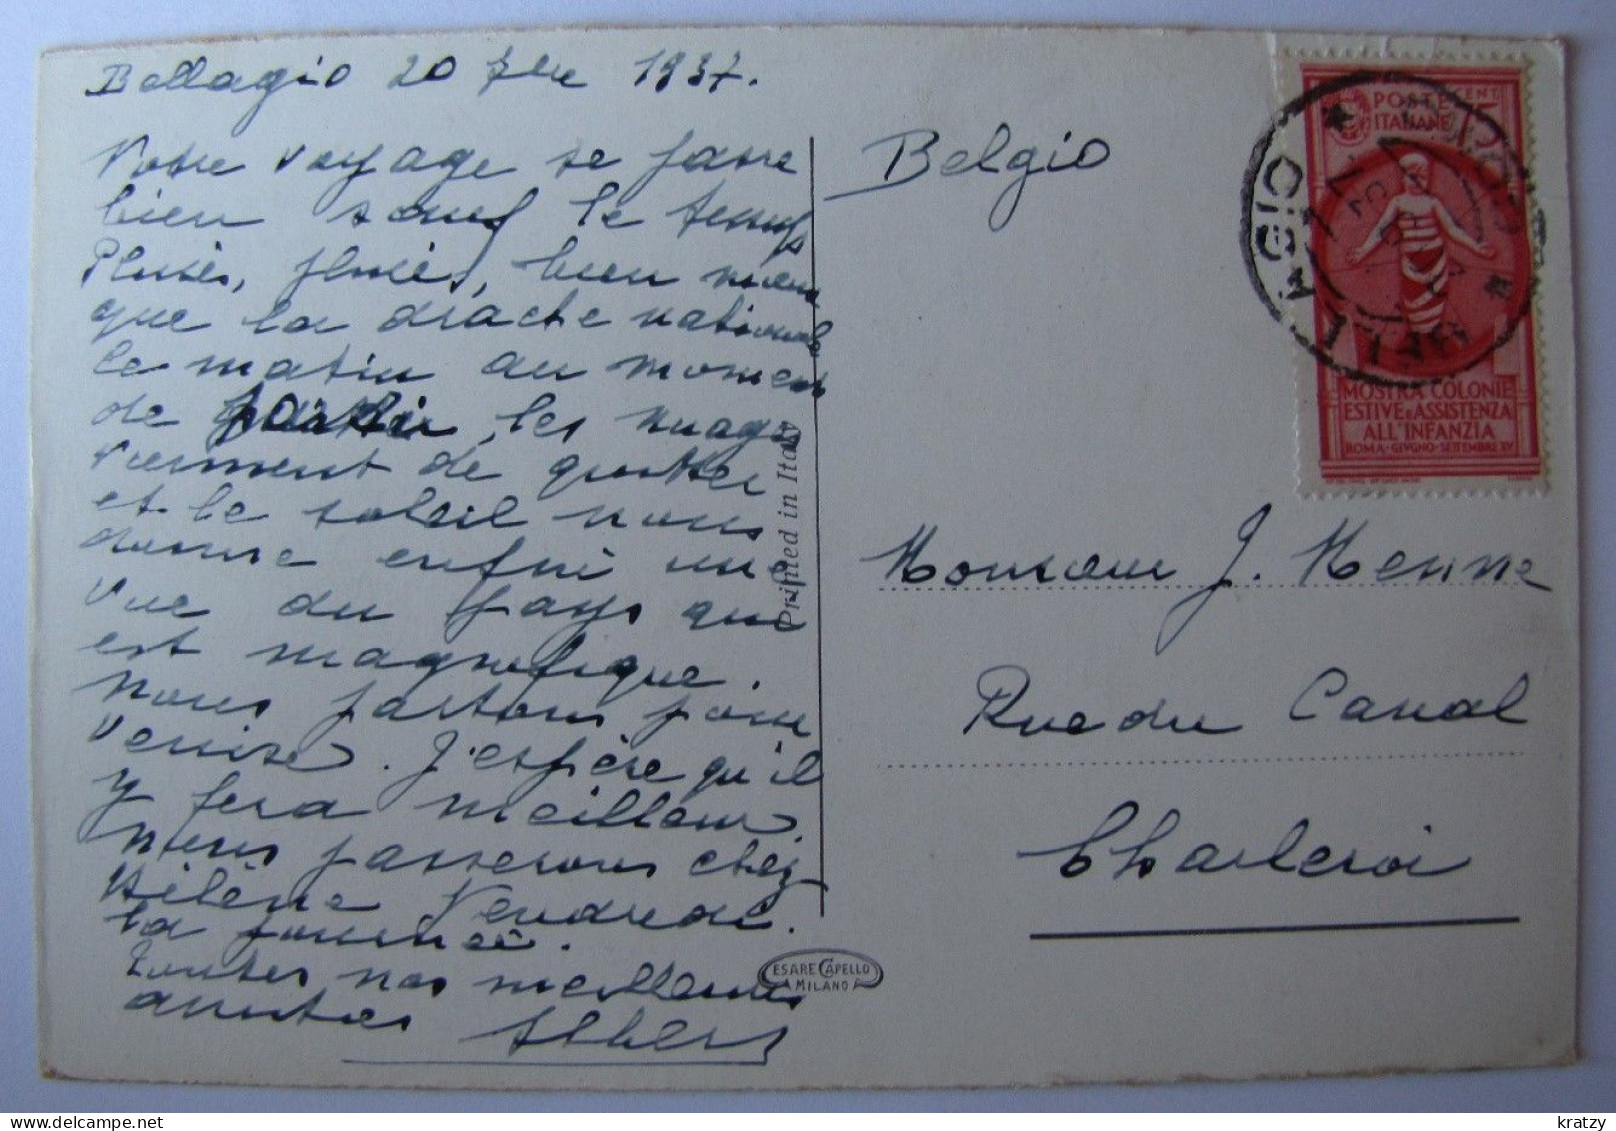 Bellagio 20 7bre 1937.
Notre voyage se passe
bien sauf le temps
Pluies, pluies, bien mieux
que la drache nationale
le matin au moment
de partir, les nuages
viennent de quitter
et le soleil nous
donne enfin une
vue du pays qui
est magnifique.
Nous partons pour
Venise. J'espère qu'il
y fera meilleur.
Nous passerons chez
Hélène Vendredi
la journée.
Toutes nos meilleures
amitiés Albert
Printed in Italy
CESARE CAPELLO
MILANO
Belgio
POSTE
ITALIANE
CENT.
25
MOSTRA COLONIE
ESTIVE E ASSISTENZA
ALL'INFANZIA
ROMA-GIUGNO-SETTEMBRE XV
BELLAGIO
Monsieur J. Henne
Rue du Canal
Charleroi
kratzy